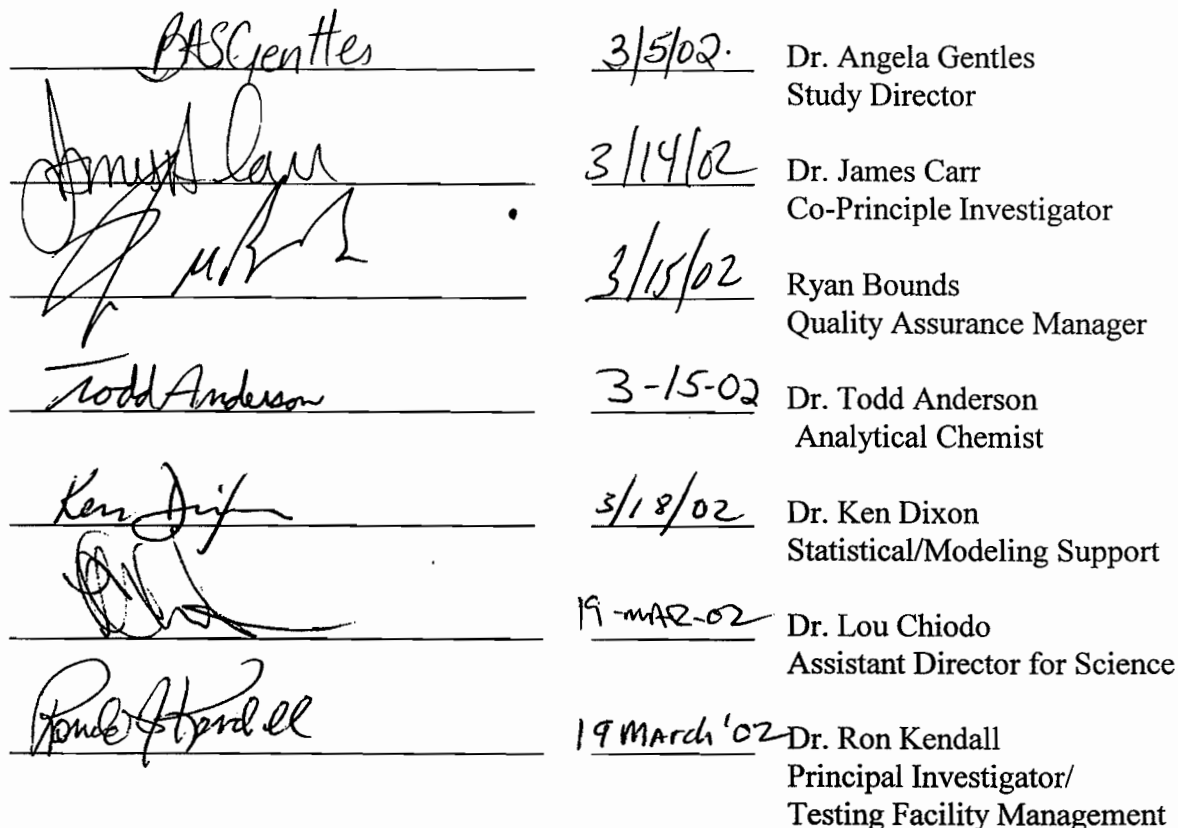 BASGentles 3/5/02. Dr. Angela Gentles
Study Director
3/14/02 Dr. James Carr
Co-Principle Investigator
3/15/02 Ryan Bounds
Quality Assurance Manager
Todd Anderson 3-15-02 Dr. Todd Anderson
Analytical Chemist
Ken Dixon 3/18/02 Dr. Ken Dixon
Statistical/Modeling Support
19-MAR-02 Dr. Lou Chiodo
Assistant Director for Science
Ronald J Kendall 19 March '02 Dr. Ron Kendall
Principal Investigator/
Testing Facility Management